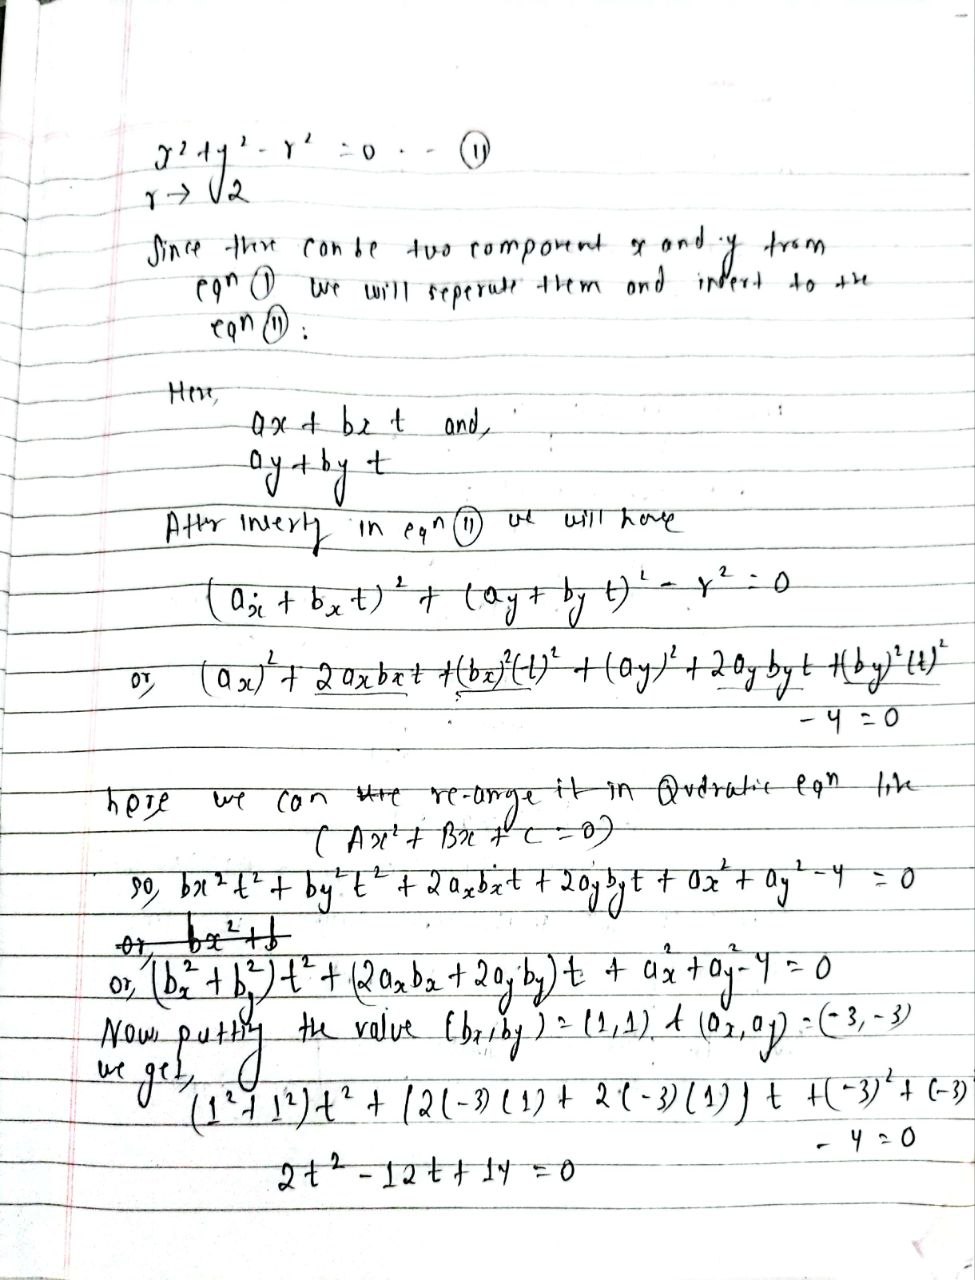 x² + y² - r² = 0 . . - ⑪
r → √2
Since there can be two component x and y from
eqn ① we will seperate them and insert to the
eqn ⑪ :
Here,
ax + bx t and,
ay + by t
After inserty in eqn ⑪ we will have
(ax + bx t)² + (ay + by t)² - r² = 0
or, (ax)² + 2 ax bx t + (bx)²(t)² + (ay)² + 2 ay by t + (by)²(t)²
- 4 = 0
here we can re-ange it in Qudratic eqn like
( Ax² + Bx + C = 0)
so, bx² t² + by² t² + 2 ax bx t + 2 ay by t + ax² + ay² - 4 = 0
or, bx² + b
or, (bx² + by²) t² + (2 ax bx + 2 ay by) t + ax² + ay² - 4 = 0
Now, putting the value (bx, by) = (1,1) & (ax, ay) = (-3, -3)
we get,
(1² + 1²) t² + (2(-3)(1) + 2(-3)(1)) t + (-3)² + (-3)
- 4 = 0
2t² - 12t + 14 = 0